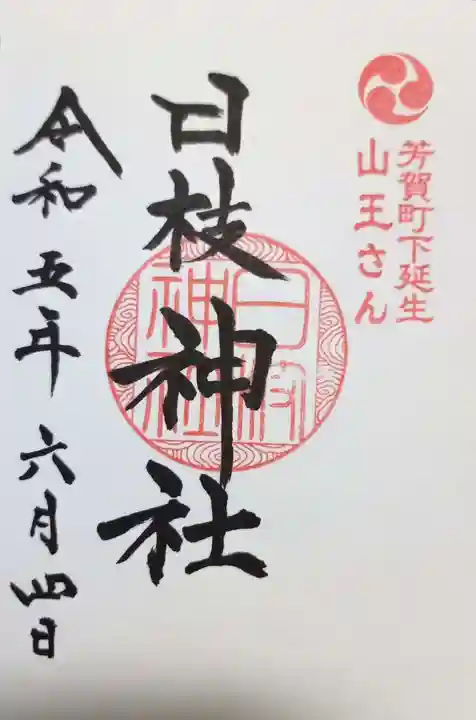 芳賀町下延生
山王さん
日枝神社
日枝神社
令和五年六月四日